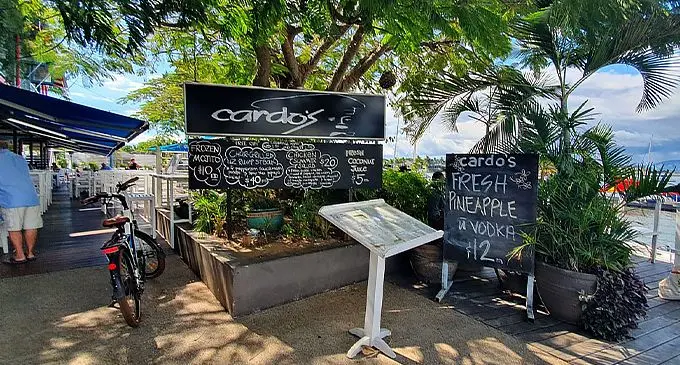 cardo's
FROZEN
MOJITO
$10
CHARGRILLED
$40
CHICKEN
$20
FRESH
COCONUT
JUICE
$5
cardo's
FRESH
PINEAPPLE
& VODKA
$12.